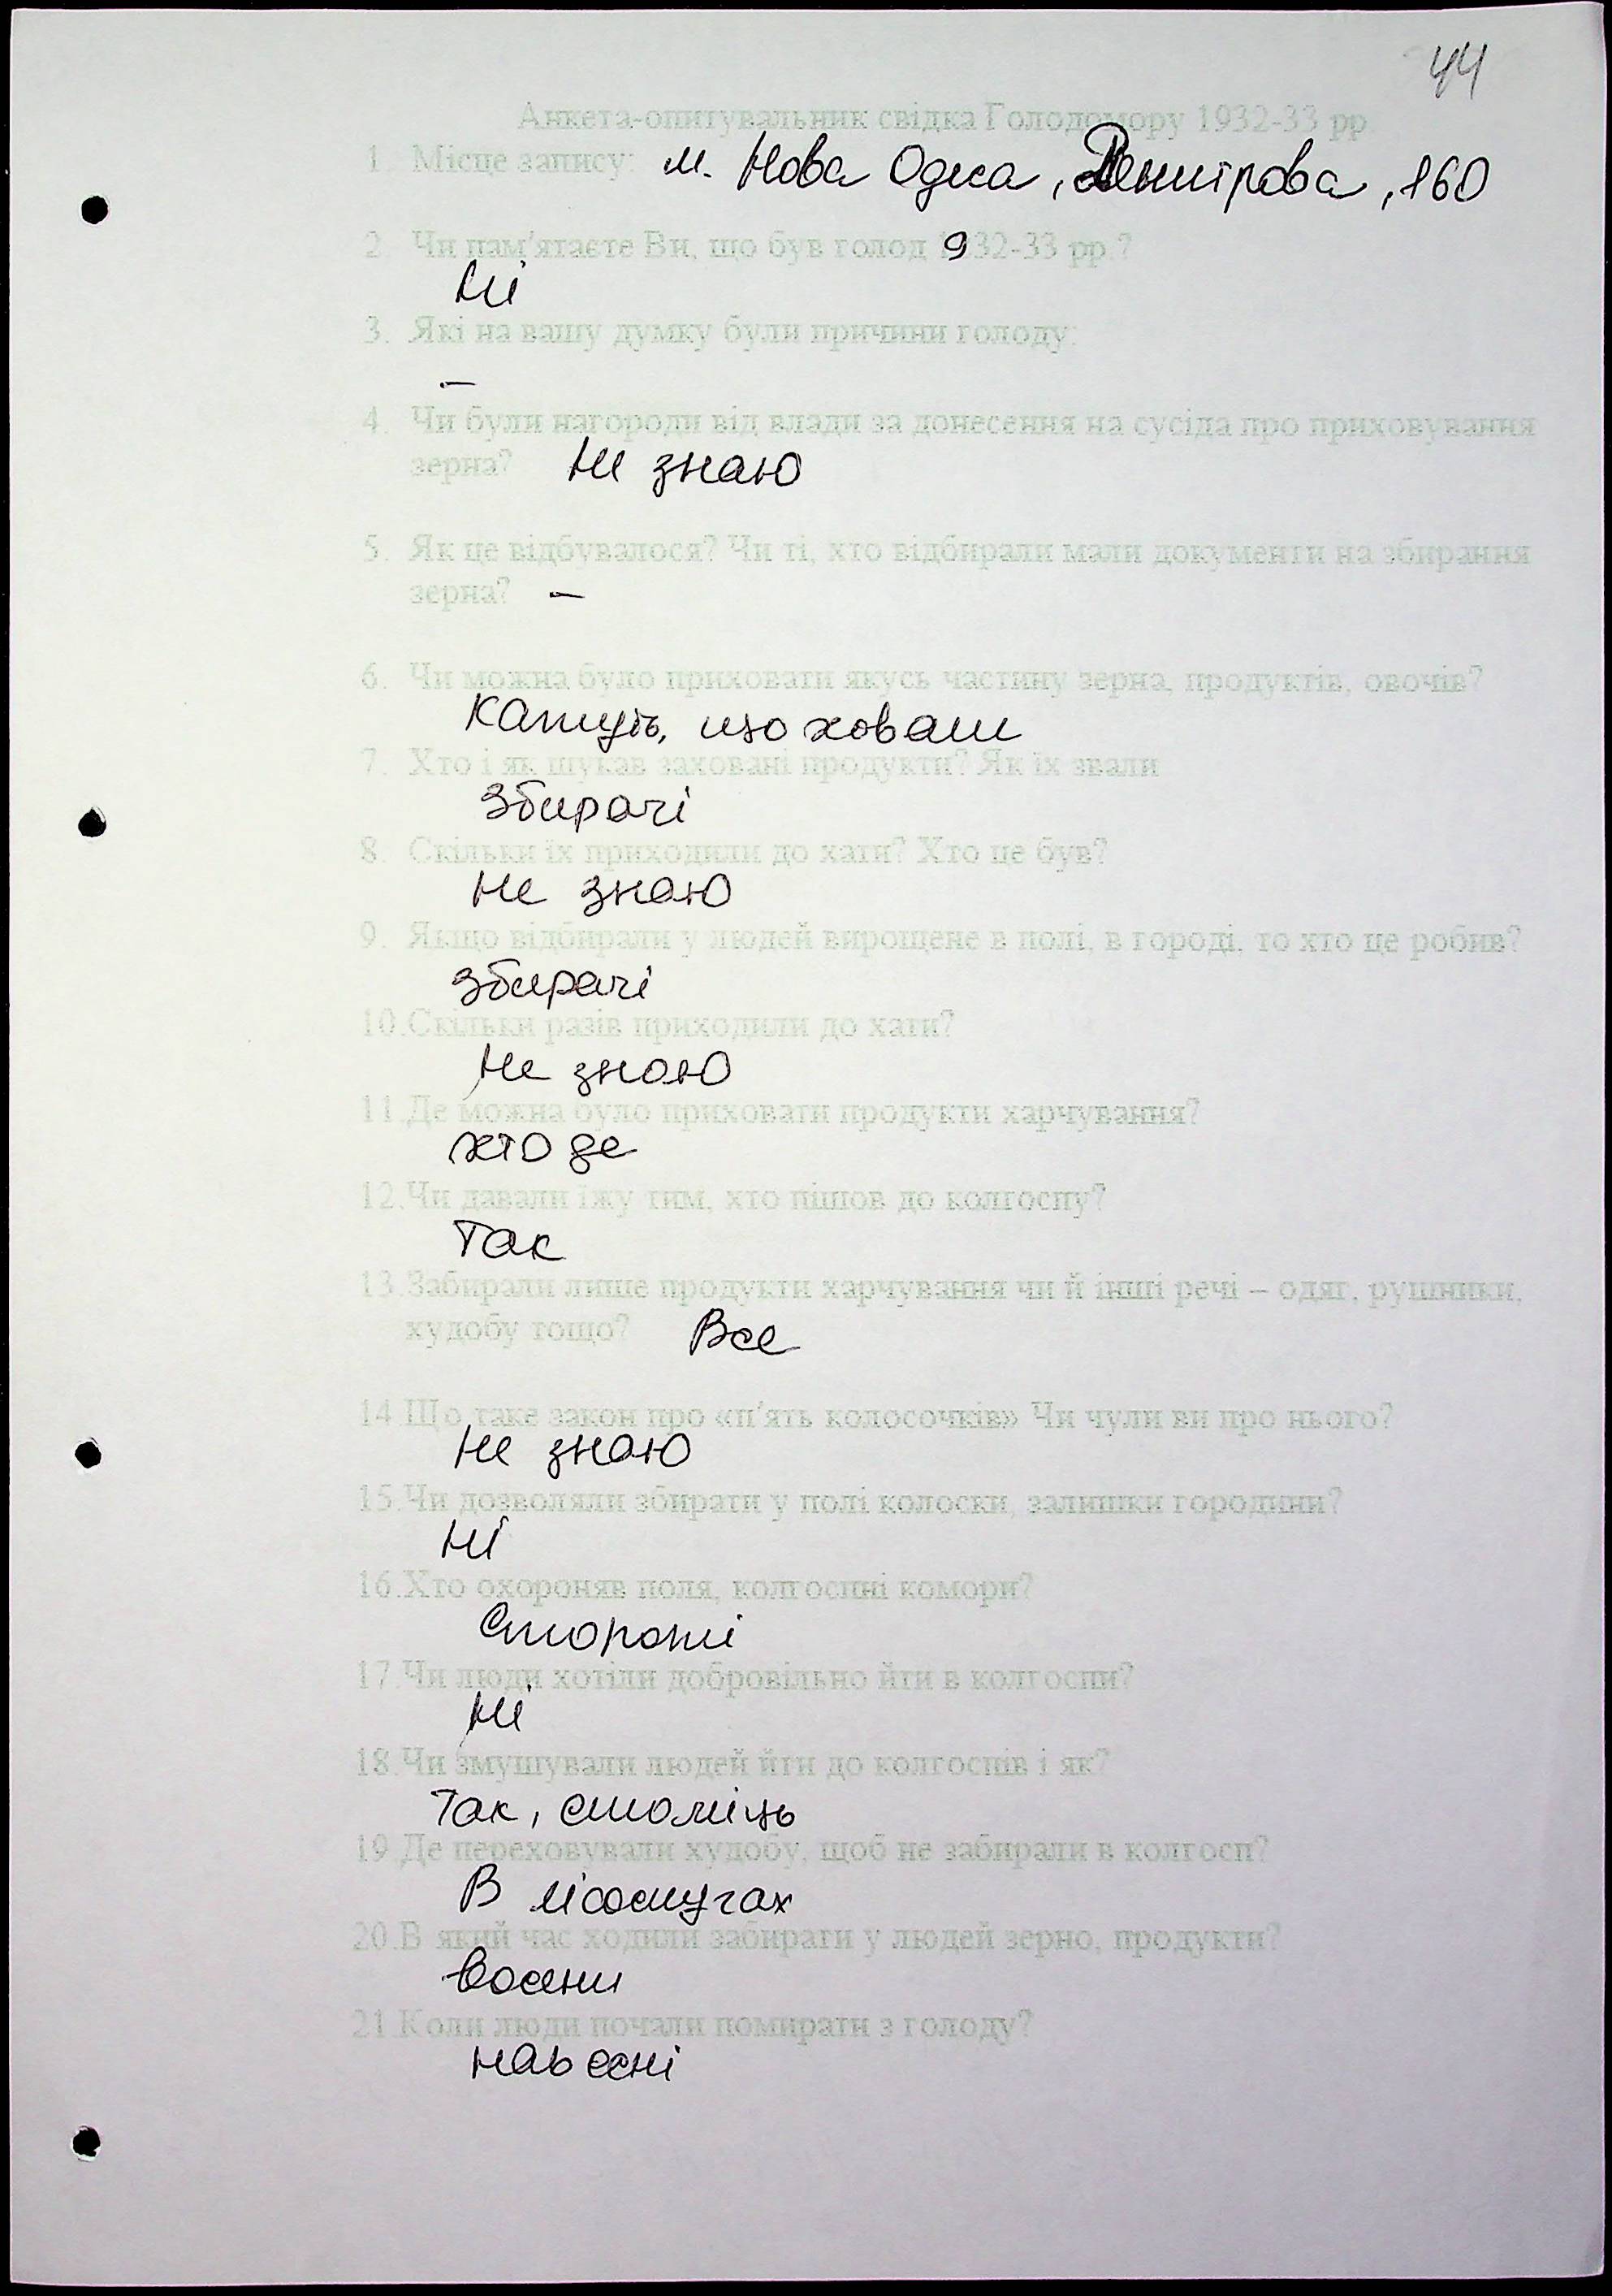 44
Анкета-опитувальник свідка Голодомору 1932-33 рр.
1. Місце запису: м. Нова Одеса, Димитрова, 160
2. Чи пам'ятаєте Ви, що був голод 1932-33 рр.?
Ні
3. Які на вашу думку були причини голоду:
–
4. Чи були нагороди від влади за донесення на сусіда про приховування
зерна? Не знаю
5. Як це відбувалося? Чи ті, хто відбирали мали документи на збирання
зерна? –
6. Чи можна було приховати якусь частину зерна, продуктів, овочів?
Кажуть, що ховали
7. Хто і як шукав заховані продукти? Як їх звали
Збирачі
8. Скільки їх приходили до хати? Хто це був?
Не знаю
9. Якщо відбирали у людей вирощене в полі, в городі, то хто це робив?
збирачі
10.Скільки разів приходили до хати?
Не знаю
11.Де можна було приховати продукти харчування?
хто де
12.Чи давали їжу тим, хто пішов до колгоспу?
Так
13.Забирали лише продукти харчування чи й інші речі – одяг, рушники,
худобу тощо? Все
14.Що таке закон про «п'ять колосочків» Чи чули ви про нього?
Не знаю
15.Чи дозволяли збирати у полі колоски, залишки городини?
Ні
16.Хто охороняв поля, колгоспні комори?
Сторожі
17.Чи люди хотіли добровільно йти в колгоспи?
Ні
18.Чи змушували людей йти до колгоспів і як?
Так,
19.Де переховували худобу, щоб не забирали в колгосп?
В лісосмугах
20.В який час ходили забирати у людей зерно, продукти?
Восени
21.Коли люди почали помирати з голоду?
навесні